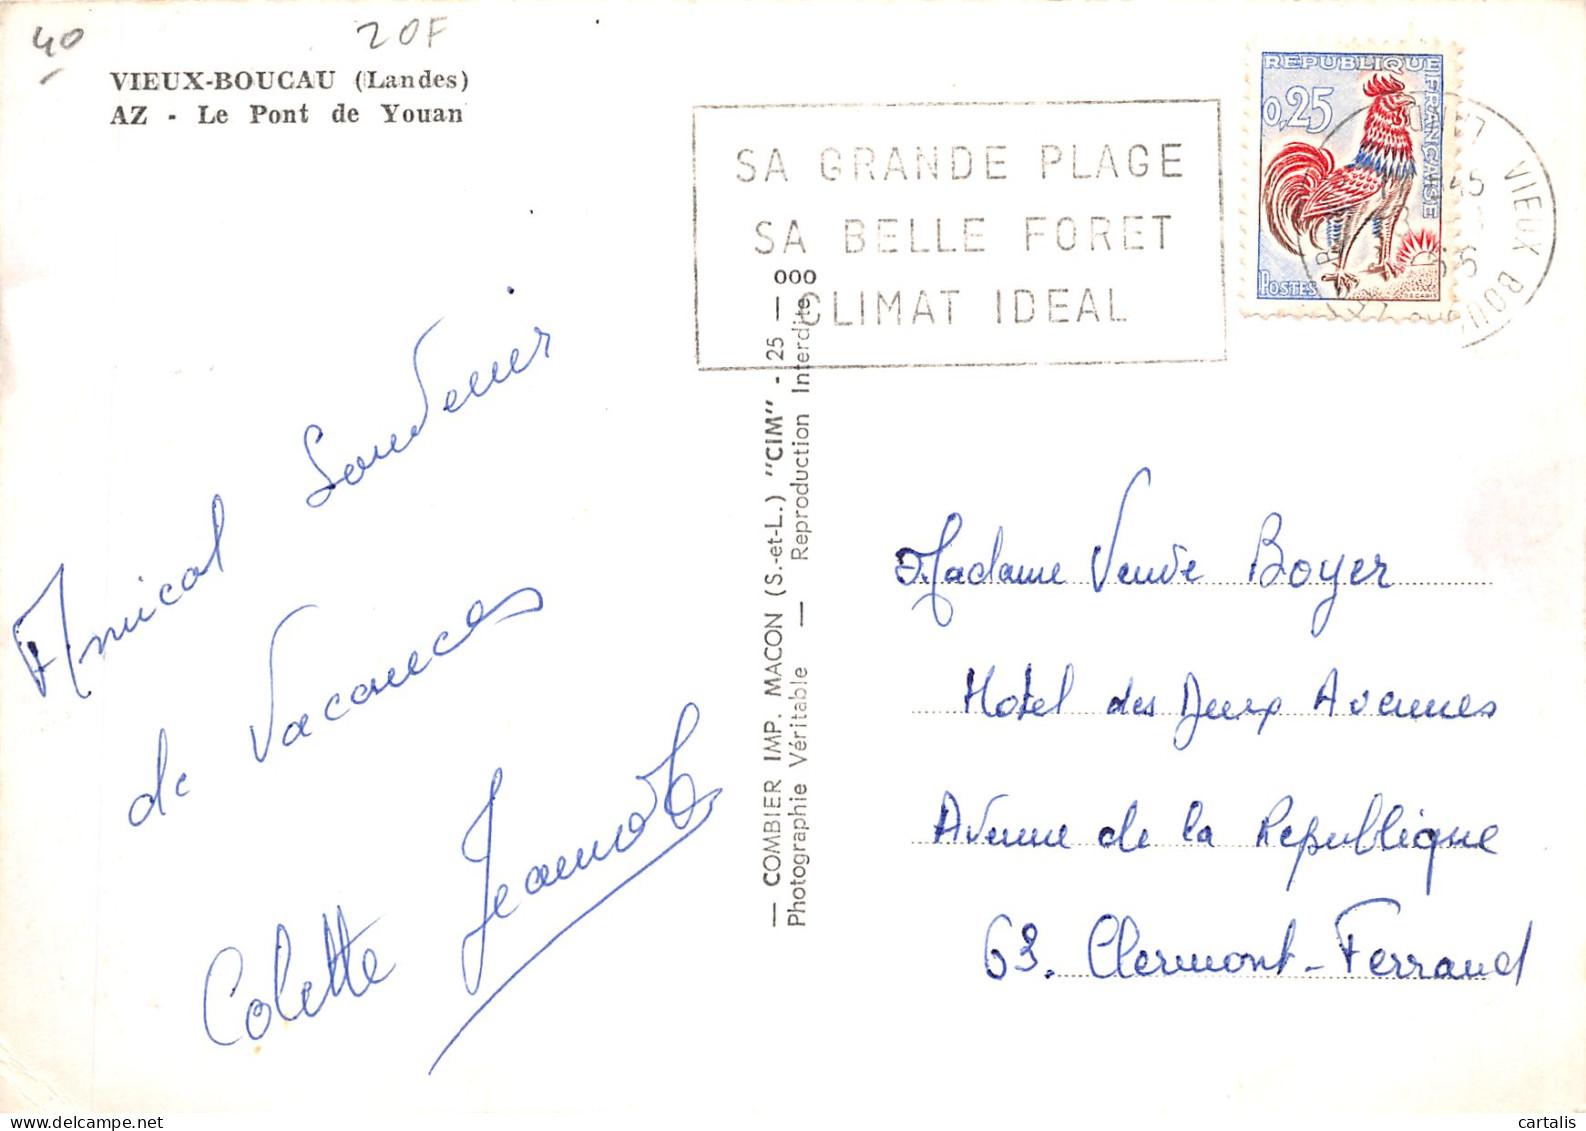 40
20F
VIEUX-BOUCAU (Landes)
AZ - Le Pont de Youan
SA GRANDE PLAGE
SA BELLE FORET
CLIMAT IDEAL
REPUBLIQUE FRANÇAISE
0,25
POSTES
DECARIS
VIEUX BOU
45
Amical Souvenir
de Vacances
Colette Jeannot
— COMBIER IMP. MACON (S.-et-L.) "CIM" - 25 — 000
Photographie Véritable — Reproduction Interdite
Madame Veuve Boyer
Hotel des Deux Avenues
Avenue de la Republique
63. Clermont-Ferrand
cartalis